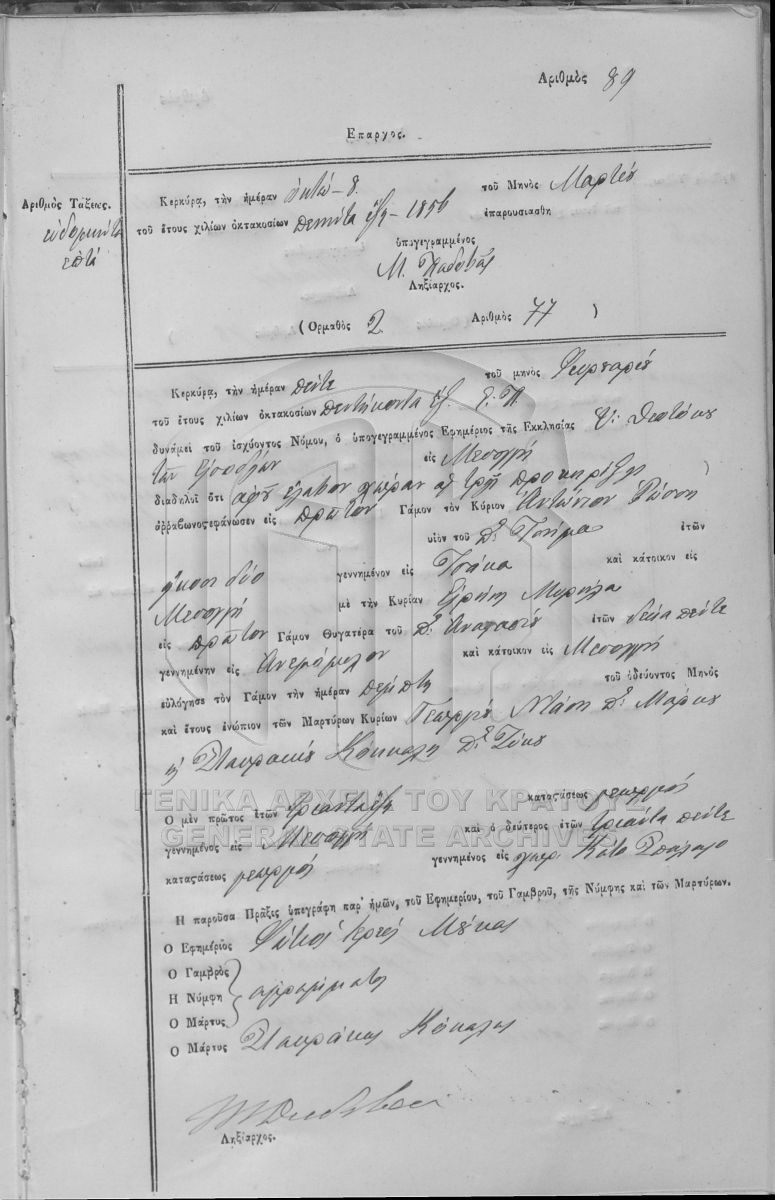 Αριθμὸς 89
Επαρχος.
Αριθμὸς Τάξεως.
ευδομήντα
επτά
Κερκύρᾳ, τὴν ἡμέραν ὀκτώ – 8. τοῦ Μηνὸς Μαρτίου
τοῦ ἔτους χιλίων ὀκτακοσίων πενήντα ἕξη – 1856 ἐπαρουσιασθη
ὑπογεγραμμένος
Μ. Παδοβᾶς
Ληξίαρχος.
(Ορμαθὸς 2 Αριθμὸς 77 )
Κερκύρᾳ, τὴν ἡμέραν πέντε τοῦ μηνὸς Φευρουαρίου
τοῦ ἔτους χιλίων ὀκτακοσίων πεντήκοντα ἕξ. Ε. Π.
δυνάμει τοῦ ἰσχύοντος Νόμου, ὁ ὑπογεγραμμένος Εφημέριος τῆς Εκκλησίας Υ: Θεοτόκου
τῶν εἰς Μεσογγή
διαδηλοῖ ότι ἀφοῦ ἔλαβον χώραν αἱ τρεῖς προκηρύξεις
ἀῤῥαβωνοςεφάνωσεν εἰς πρῶτον Γάμον τὸν Κύριον Ἀντώνιον Ρώσση
υἱὸν τοῦ ἐτῶν
ἤκοσι δύο γεννημένον εἰς καὶ κάτοικον εἰς
Μεσογγή μὲ τὴν Κυρίαν Εἰρήνη
εἰς πρῶτον Γάμον Θυγατέρα τοῦ Ἀναστασίου ἐτῶν δεκαπέντε
γεννημένην εἰς Ἀνεμόμυλον καὶ κάτοικον εἰς Μεσογγή
εὐλόγησε τὸν Γάμον τὴν ἡμέραν πέμπτη τοῦ ὁδεύοντος Μηνὸς
καὶ ἔτους ἐνώπιον τῶν Μαρτύρων Κυρίων Γεώργιος Μάρκου
Σταυράκης Κόκκαλη
Ο μὲν πρῶτος ἐτῶν τριανταέξη καταςάσεως γεωργός
γεννημένος εἰς Μεσογγή καὶ ὁ δεύτερος ἐτῶν τριάντα πέντε
καταςάσεως γεωργός γεννημένος εἰς χωρ. Κάτω
Η παροῦσα Πρᾶξις ὑπεγράφη παρ' ἡμῶν, τοῦ Εφημερίου, τοῦ Γαμβροῦ, τῆς Νύμφης καὶ τῶν Μαρτύρων.
Ο Εφημέριος Φώτιος Ἱερεύς
Ο Γαμβρὸς
Η Νύμφη αγράμματοι
Ο Μάρτυς
Ο Μάρτυς Σταυράκης Κόκαλης
Ληξίαρχος.
ΓΕΝΙΚΑ ΑΡΧΕΙΑ ΤΟΥ ΚΡΑΤΟΥΣ
GENERAL STATE ARCHIVES